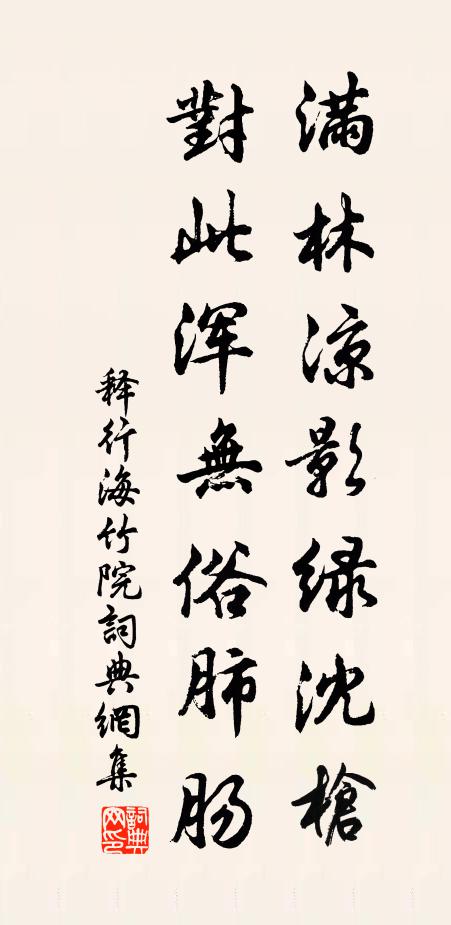 滿林涼影綠沈槍
對此渾無俗肺肠
释行海竹院詞典網集
詞典网印